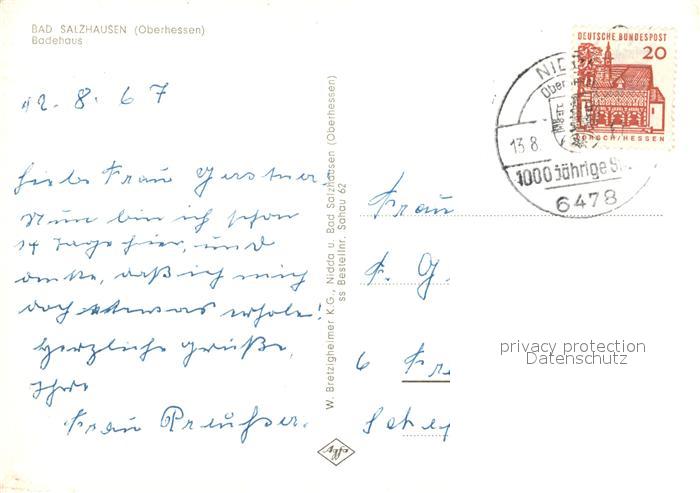 BAD SALZHAUSEN (Oberhessen)
Badehaus
12.8.67
Liebe Frau Gerstner.
Nun bin ich schon
14 Tage hier, und
denke, daß ich mich
doch etwas erhole!
Herzliche Grüße,
Ihre
Frau
W. Bretzigheimer K.G., Nidda u. Bad Salzhausen (Oberhessen)
ss Bestellnr. Sahau 62
Agfa
DEUTSCHE BUNDESPOST
20
LORSCH/HESSEN
13.8.
1000 jährige
6478
Frau
F. G.
6
privacy protection
Datenschutz